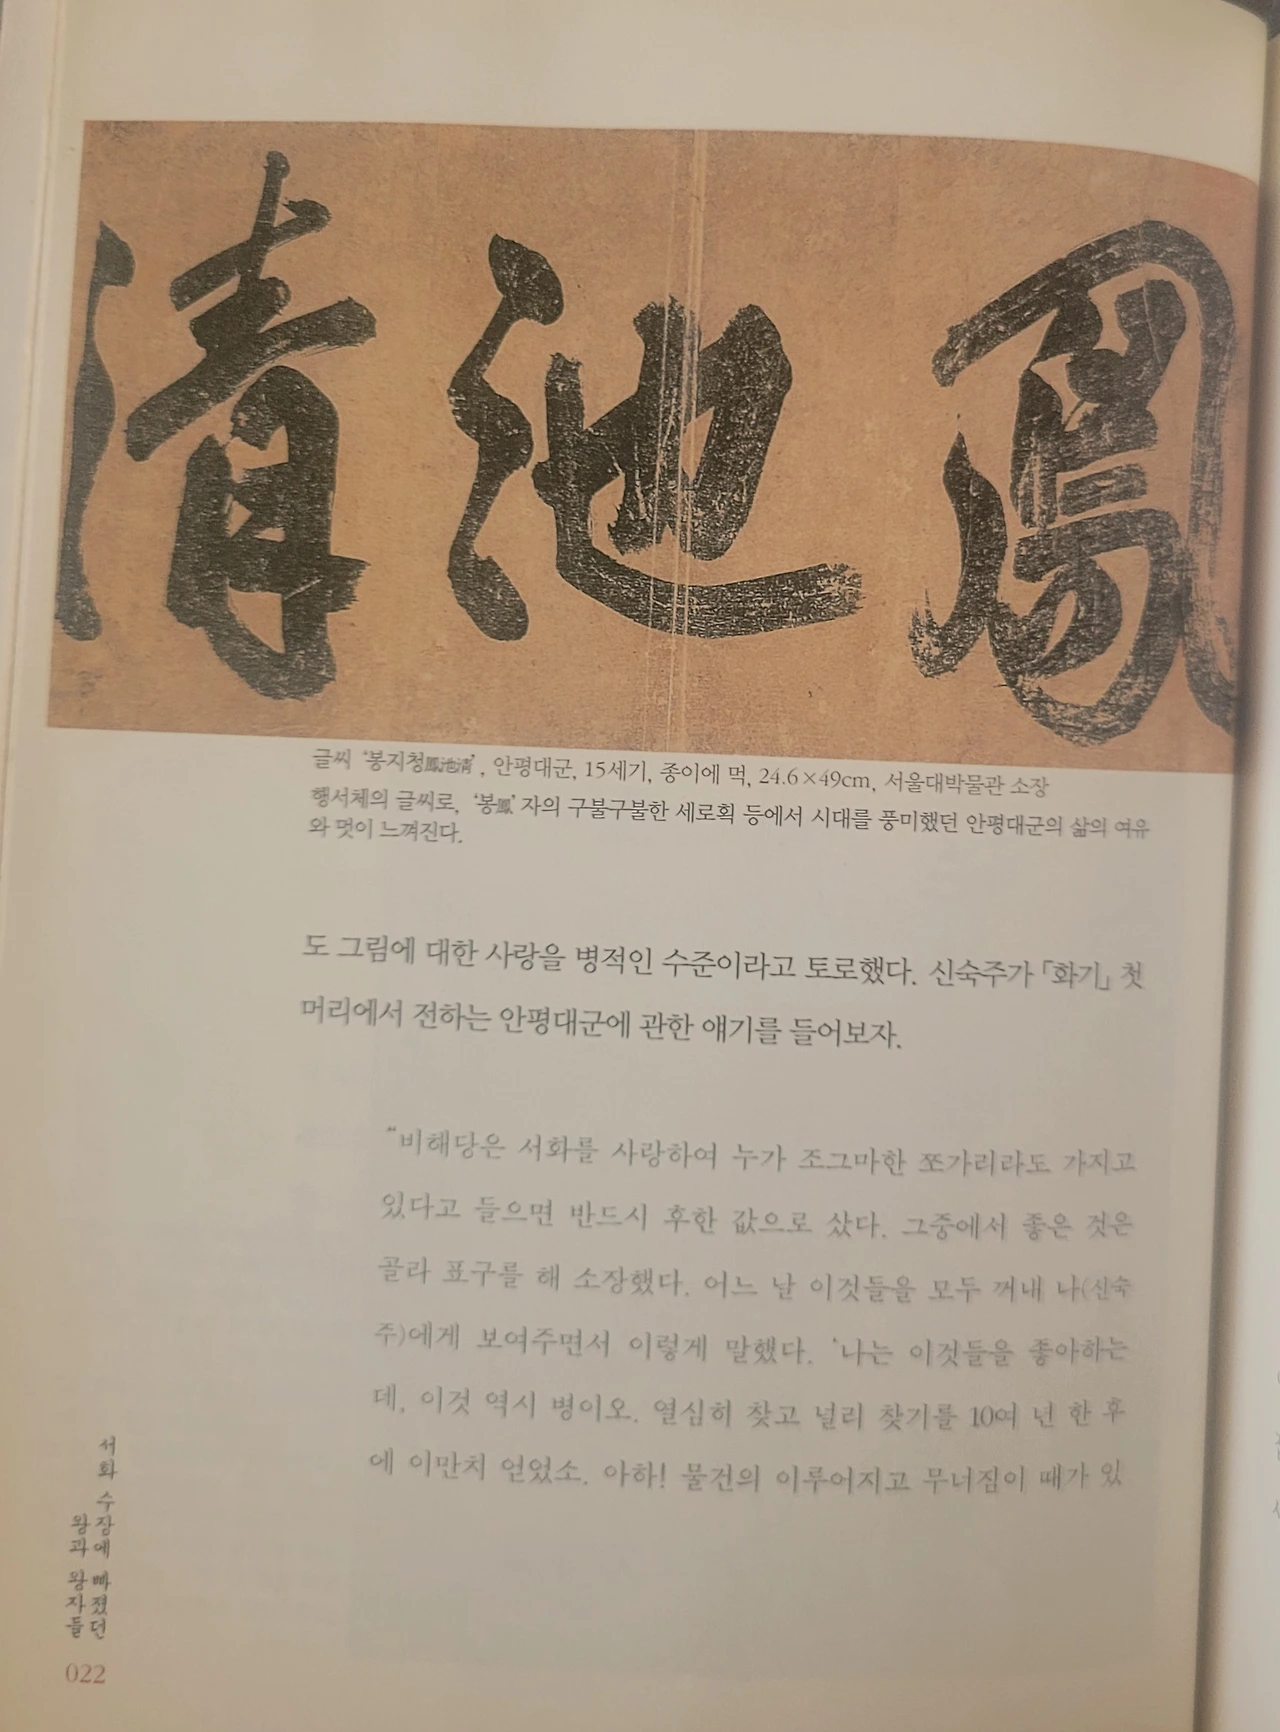 鳳池清
글씨 '봉지청鳳池淸', 안평대군, 15세기, 종이에 먹, 24.6×49cm, 서울대박물관 소장
행서체의 글씨로, '봉鳳'자의 구불구불한 세로획 등에서 시대를 풍미했던 안평대군의 삶의 여유
와 멋이 느껴진다.
도 그림에 대한 사랑을 병적인 수준이라고 토로했다. 신숙주가 「화기」 첫
머리에서 전하는 안평대군에 관한 얘기를 들어보자.
"비해당은 서화를 사랑하여 누가 조그마한 쪼가리라도 가지고
있다고 들으면 반드시 후한 값으로 샀다. 그중에서 좋은 것은
골라 표구를 해 소장했다. 어느 날 이것들을 모두 꺼내 나(신숙
주)에게 보여주면서 이렇게 말했다. '나는 이것들을 좋아하는
데, 이것 역시 병이오. 열심히 찾고 널리 찾기를 10여 년 한 후
에 이만치 얻었소. 아하! 물건의 이루어지고 무너짐이 때가 있
서화 수장에 빠졌던
왕과 왕자들
022